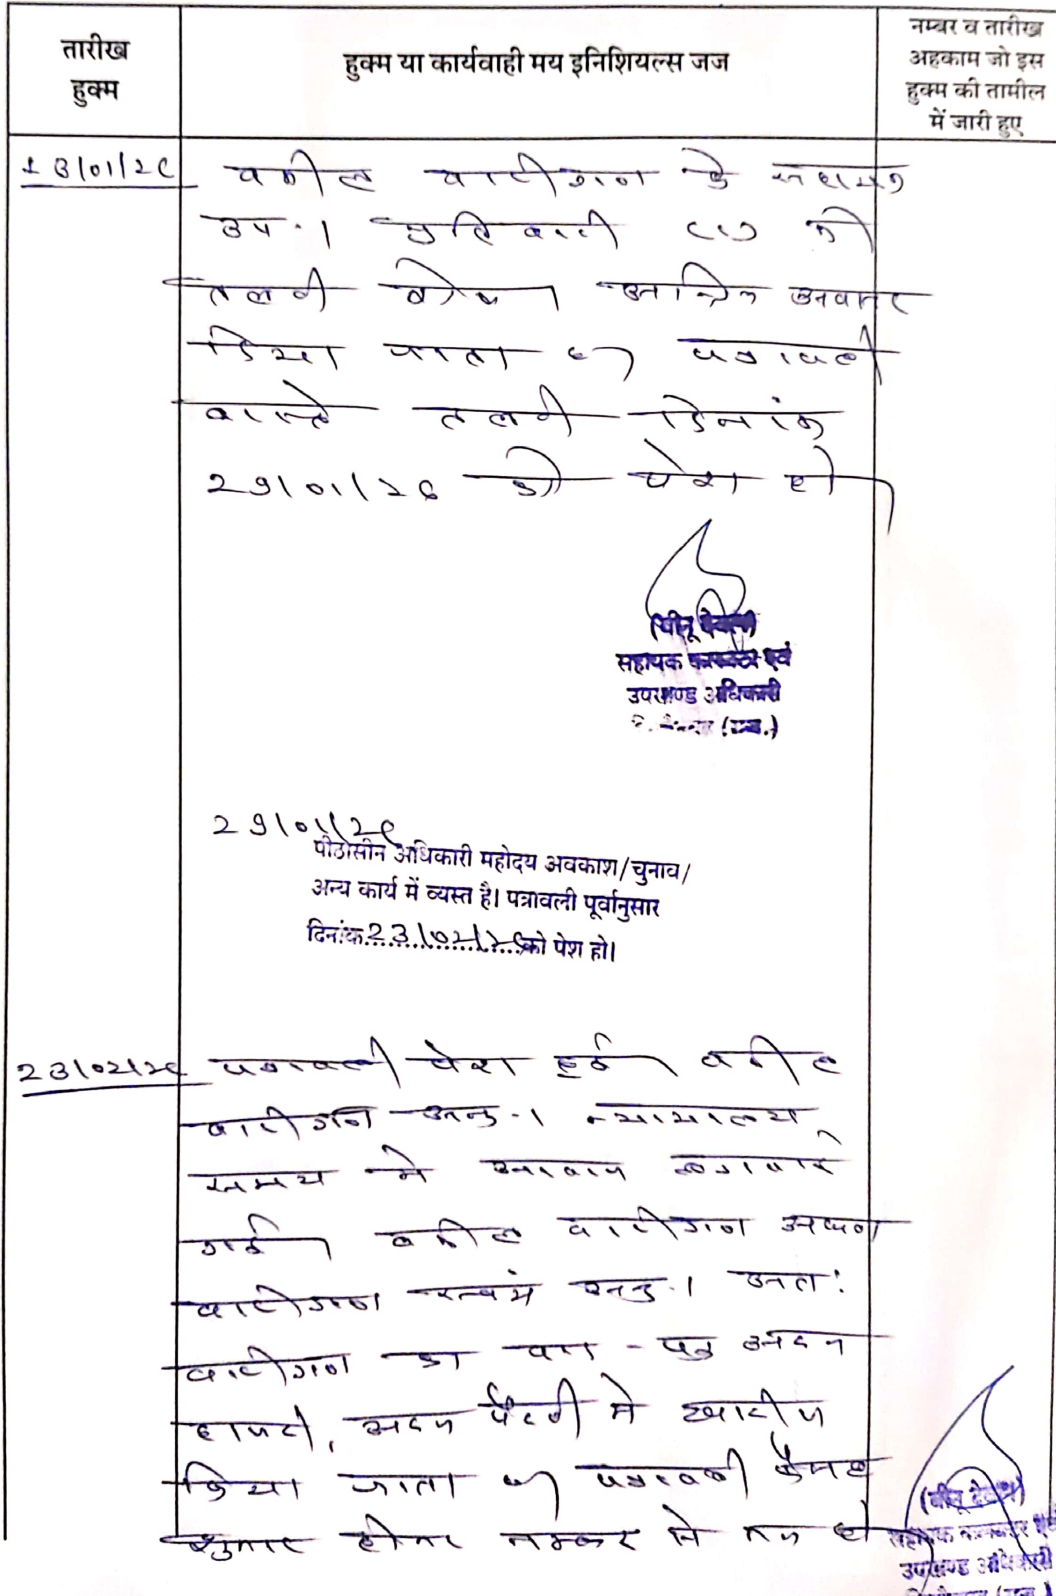 तारीख
हुक्म
हुक्म या कार्यवाही मय इनिशियल्स जज
नम्बर व तारीख
अहकाम जो इस
हुक्म की तामील
में जारी हुए
13/01/26 वकील वादीगण के
उप.। प्रतिवादी की
तलबी शेष। अन्तिम अवसर
दिया जाता है। पत्रावली
वास्ते तलबी दिनांक
29/01/26 को पेश हो।
सहायक कलक्टर एवं
उपखण्ड अधिकारी
(राज.)
29/01/26
पीठासीन अधिकारी महोदय अवकाश/चुनाव/
अन्य कार्य में व्यस्त है। पत्रावली पूर्वानुसार
दिनांक 23/02/26 को पेश हो।
23/02/26 पत्रावली पेश हुई। वकील
वादीगण अनु.। न्यायालय
समय मे आवाज लगवाई
गई। वकील वादीगण अथवा
वादीगण स्वयं अनु.। अतः
वादीगण का वाद-पत्र अदम
हाजरी, अदम पैरवी मे खारीज
किया जाता है। पत्रावली फैसल
शुमार होकर नम्बर से कम हो।
सहायक कलक्टर एवं
उपखण्ड अधिकारी